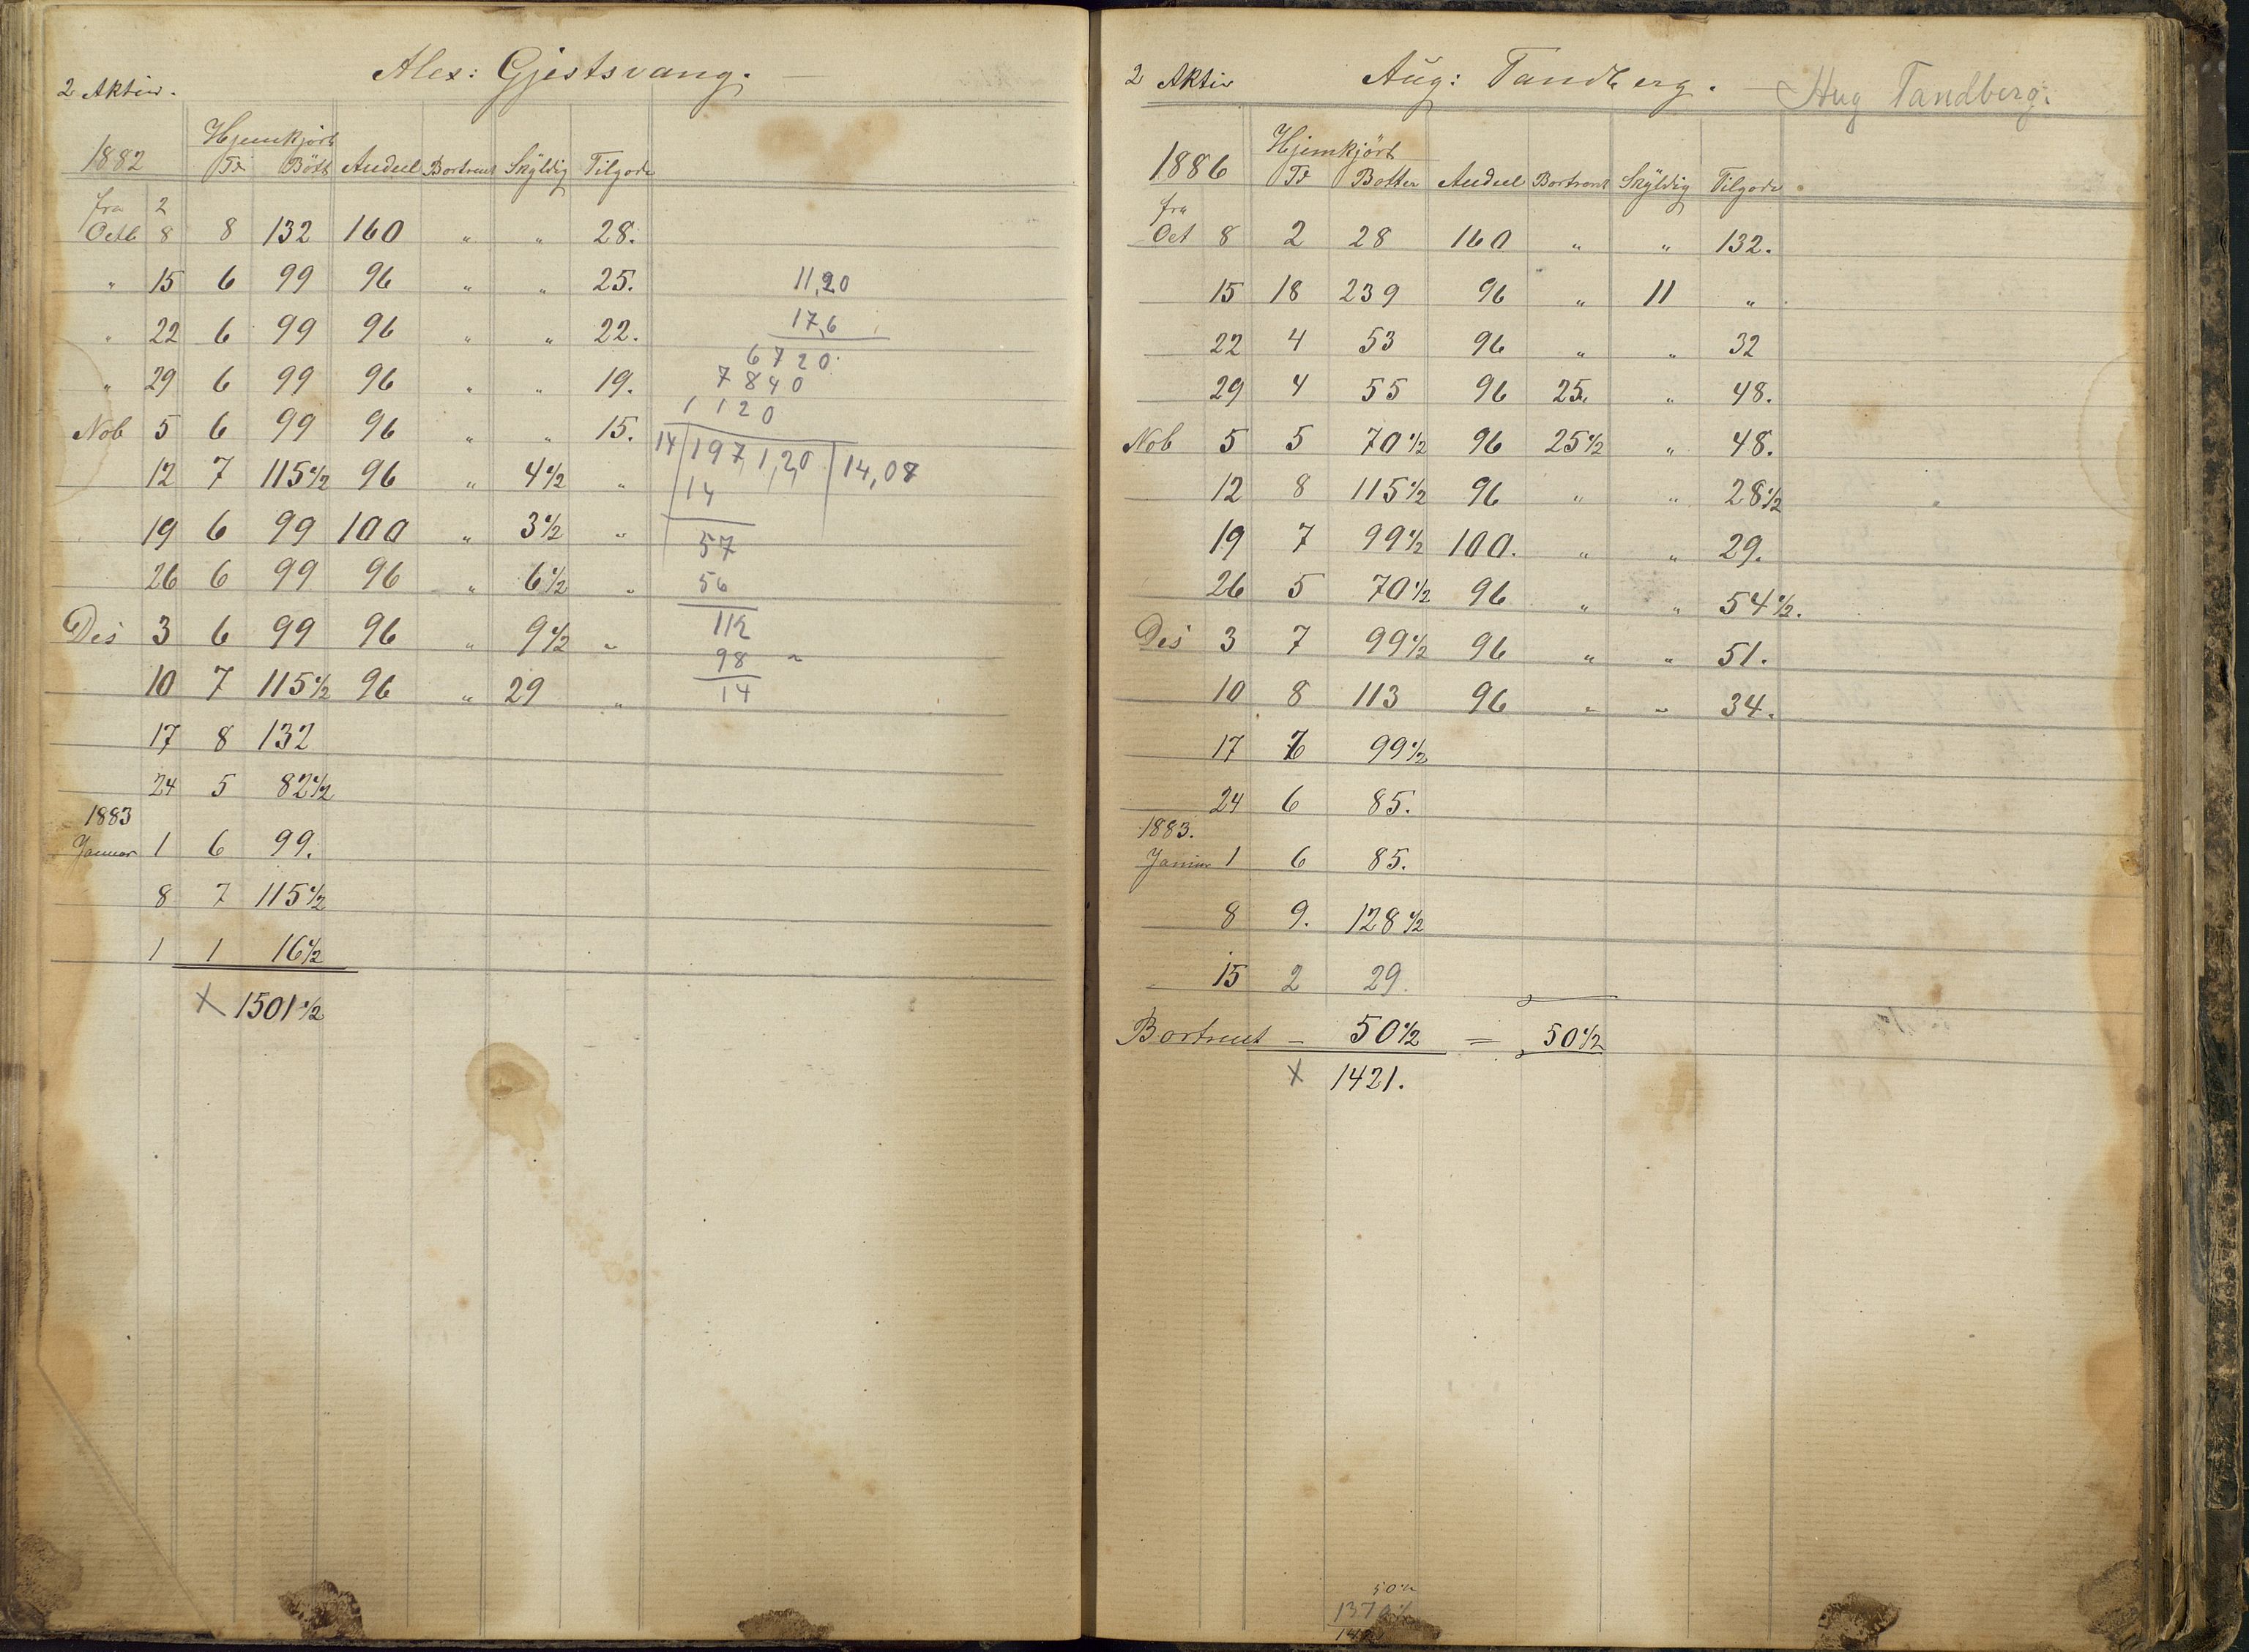 Alex: Gjestsvang.
2 Aktier.
Hjemkjört
1882 Tr Bött Andeel Bortrent Skÿldig Tilgode
fra 2
Octb 8 8 132 160 " " 28.
" 15 6 99 96 " " 25.
" 22 6 99 96 " " 22.
" 29 6 99 96 " " 19.
Nob 5 6 99 96 " " 15.
12 7 115½ 96 " 4½ "
19 6 99 100 " 3½ "
26 6 99 96 " 6½ "
Des 3 6 99 96 " 9½ "
10 7 115½ 96 " 29 "
17 8 132
24 5 82½
1883
Januar 1 6 99.
8 7 115½
1 1 16½
x 1501½
11,20
17,6
6720
7840
1120
14 197,1,20 14,08
14
57
56
112
98
14
2 Aktier Aug: Tandberg. - Aug Tandberg.
Hjemkjört
1886 Tr Botter Andeel Bortrent Skÿldig Tilgode
fra
Oct 8 2 28 160 " " 132.
15 18 239 96 " 11 "
22 4 53 96 " " 32
29 4 55 96 25 " 48.
Nob 5 5 70½ 96 25½ " 48.
12 8 115½ 96 " " 28½
19 7 99½ 100. " " 29.
26 5 70½ 96 " " 54½.
Des 3 7 99½ 96 " " 51.
10 8 113 96 " " 34.
17 7 99½
24 6 85.
1883.
Januar 1 6 85.
8 9. 128½
15 2 29.
Bortrent - 50½ = 50½
x 1421.
50½
1370½